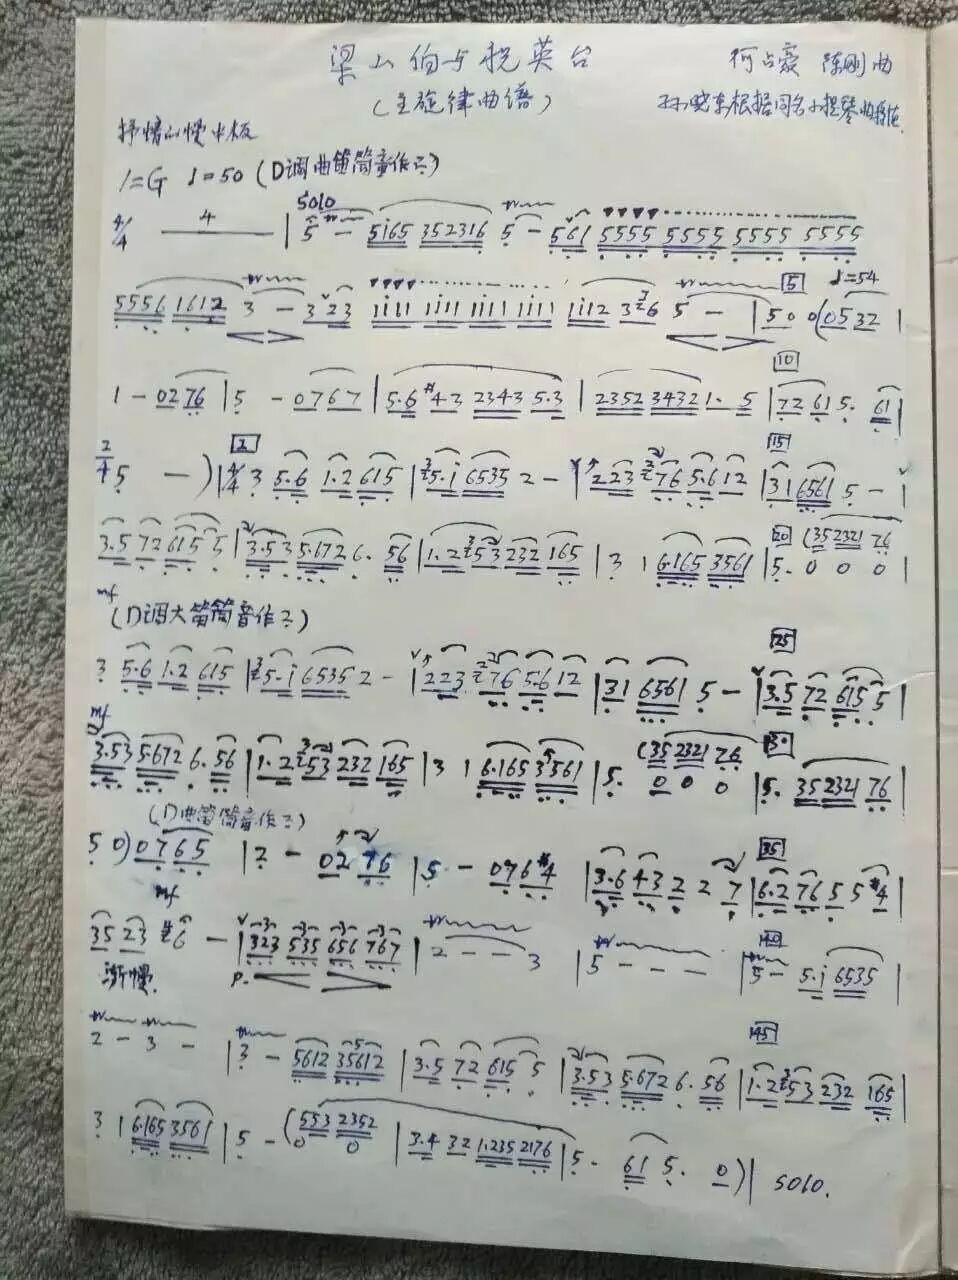 梁山伯与祝英台 何占豪 陈刚 曲
(主旋律曲谱) 孙晓东根据同名小提琴曲移植
抒情的慢中板
1=G ♩=50 (D调曲笛筒音作2)
4/4 4 | SOLO 5 - 5i65 352316 5 - 561 5555 5555 5555 5555
5556 1612 3 - 323 i111 i111 i111 i111 i112 326 5 - | 5 0 0 (0532 |
1 - 0276 | 5 - 0767 | 5.6 #43 2343 5.3 | 2352 3432 1. 5 | 72 61 5. 61 |
2/4 5 - ) | 4/4 3 5.6 1.2 615 | 5.i 6535 2 - | 223 76 5.6 12 | 31 6561 5 - |
3.5 72 615 5 | 3.53 5.672 6. 56 | 1.2 53 232 165 | 3 1 6.165 3561 | 5. 0 0 0 | (35 2321 76
mf
(D调大笛筒音作2)
3 5.6 1.2 615 | 5.i 6535 2 - | 223 76 5.6 12 | 31 6561 5 - | 3.5 72 615 5 |
mf
3.53 5.672 6. 56 | 1.2 53 232 165 | 3 1 6.165 3561 | 5. 0 0 0 (35 2321 76 | 5. 35 2321 76 |
(D曲笛筒音作2)
5 0) 0765 | 2 - 0276 | 5 - 076#4 | 3.6 43 2 2 7 | 6.2 76 5 5 #4 |
mf
35 23 #6 - | 323 535 656 767 | 2 - - 3 | 5 - - - | 5 - 5.i 6535 |
渐慢. p.
2 - 3 - | 3 - 5612 35612 | 3.5 72 615 5 | 3.53 5.672 6. 56 | 1.2 53 232 165 |
3 1 6.165 3561 | 5 - (553 2352 0 0 | 3.4 32 1.235 2176 | 5. 61 5. 0 ) | SOLO.